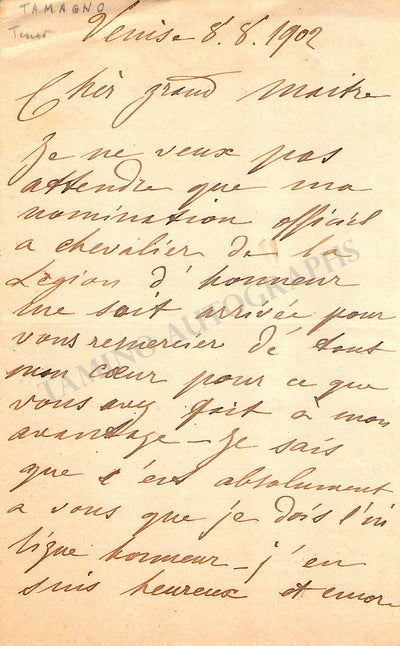 TAMAGNO
Tenor
Venise 8.8.1902
Chèr grand maitre
Je ne veux pas
attendre que ma
nomination officiel
a chevalier de la
Légion d'honneur
me soit arrivée pour
vous remercier de tout
mon cœur pour ce que
vous avez fait à mon
avantage - Je sais
que c'est absolument
a vous que je dois l'in
signe honneur - j'en
suis heureux et
TAMINO AUTOGRAPHS